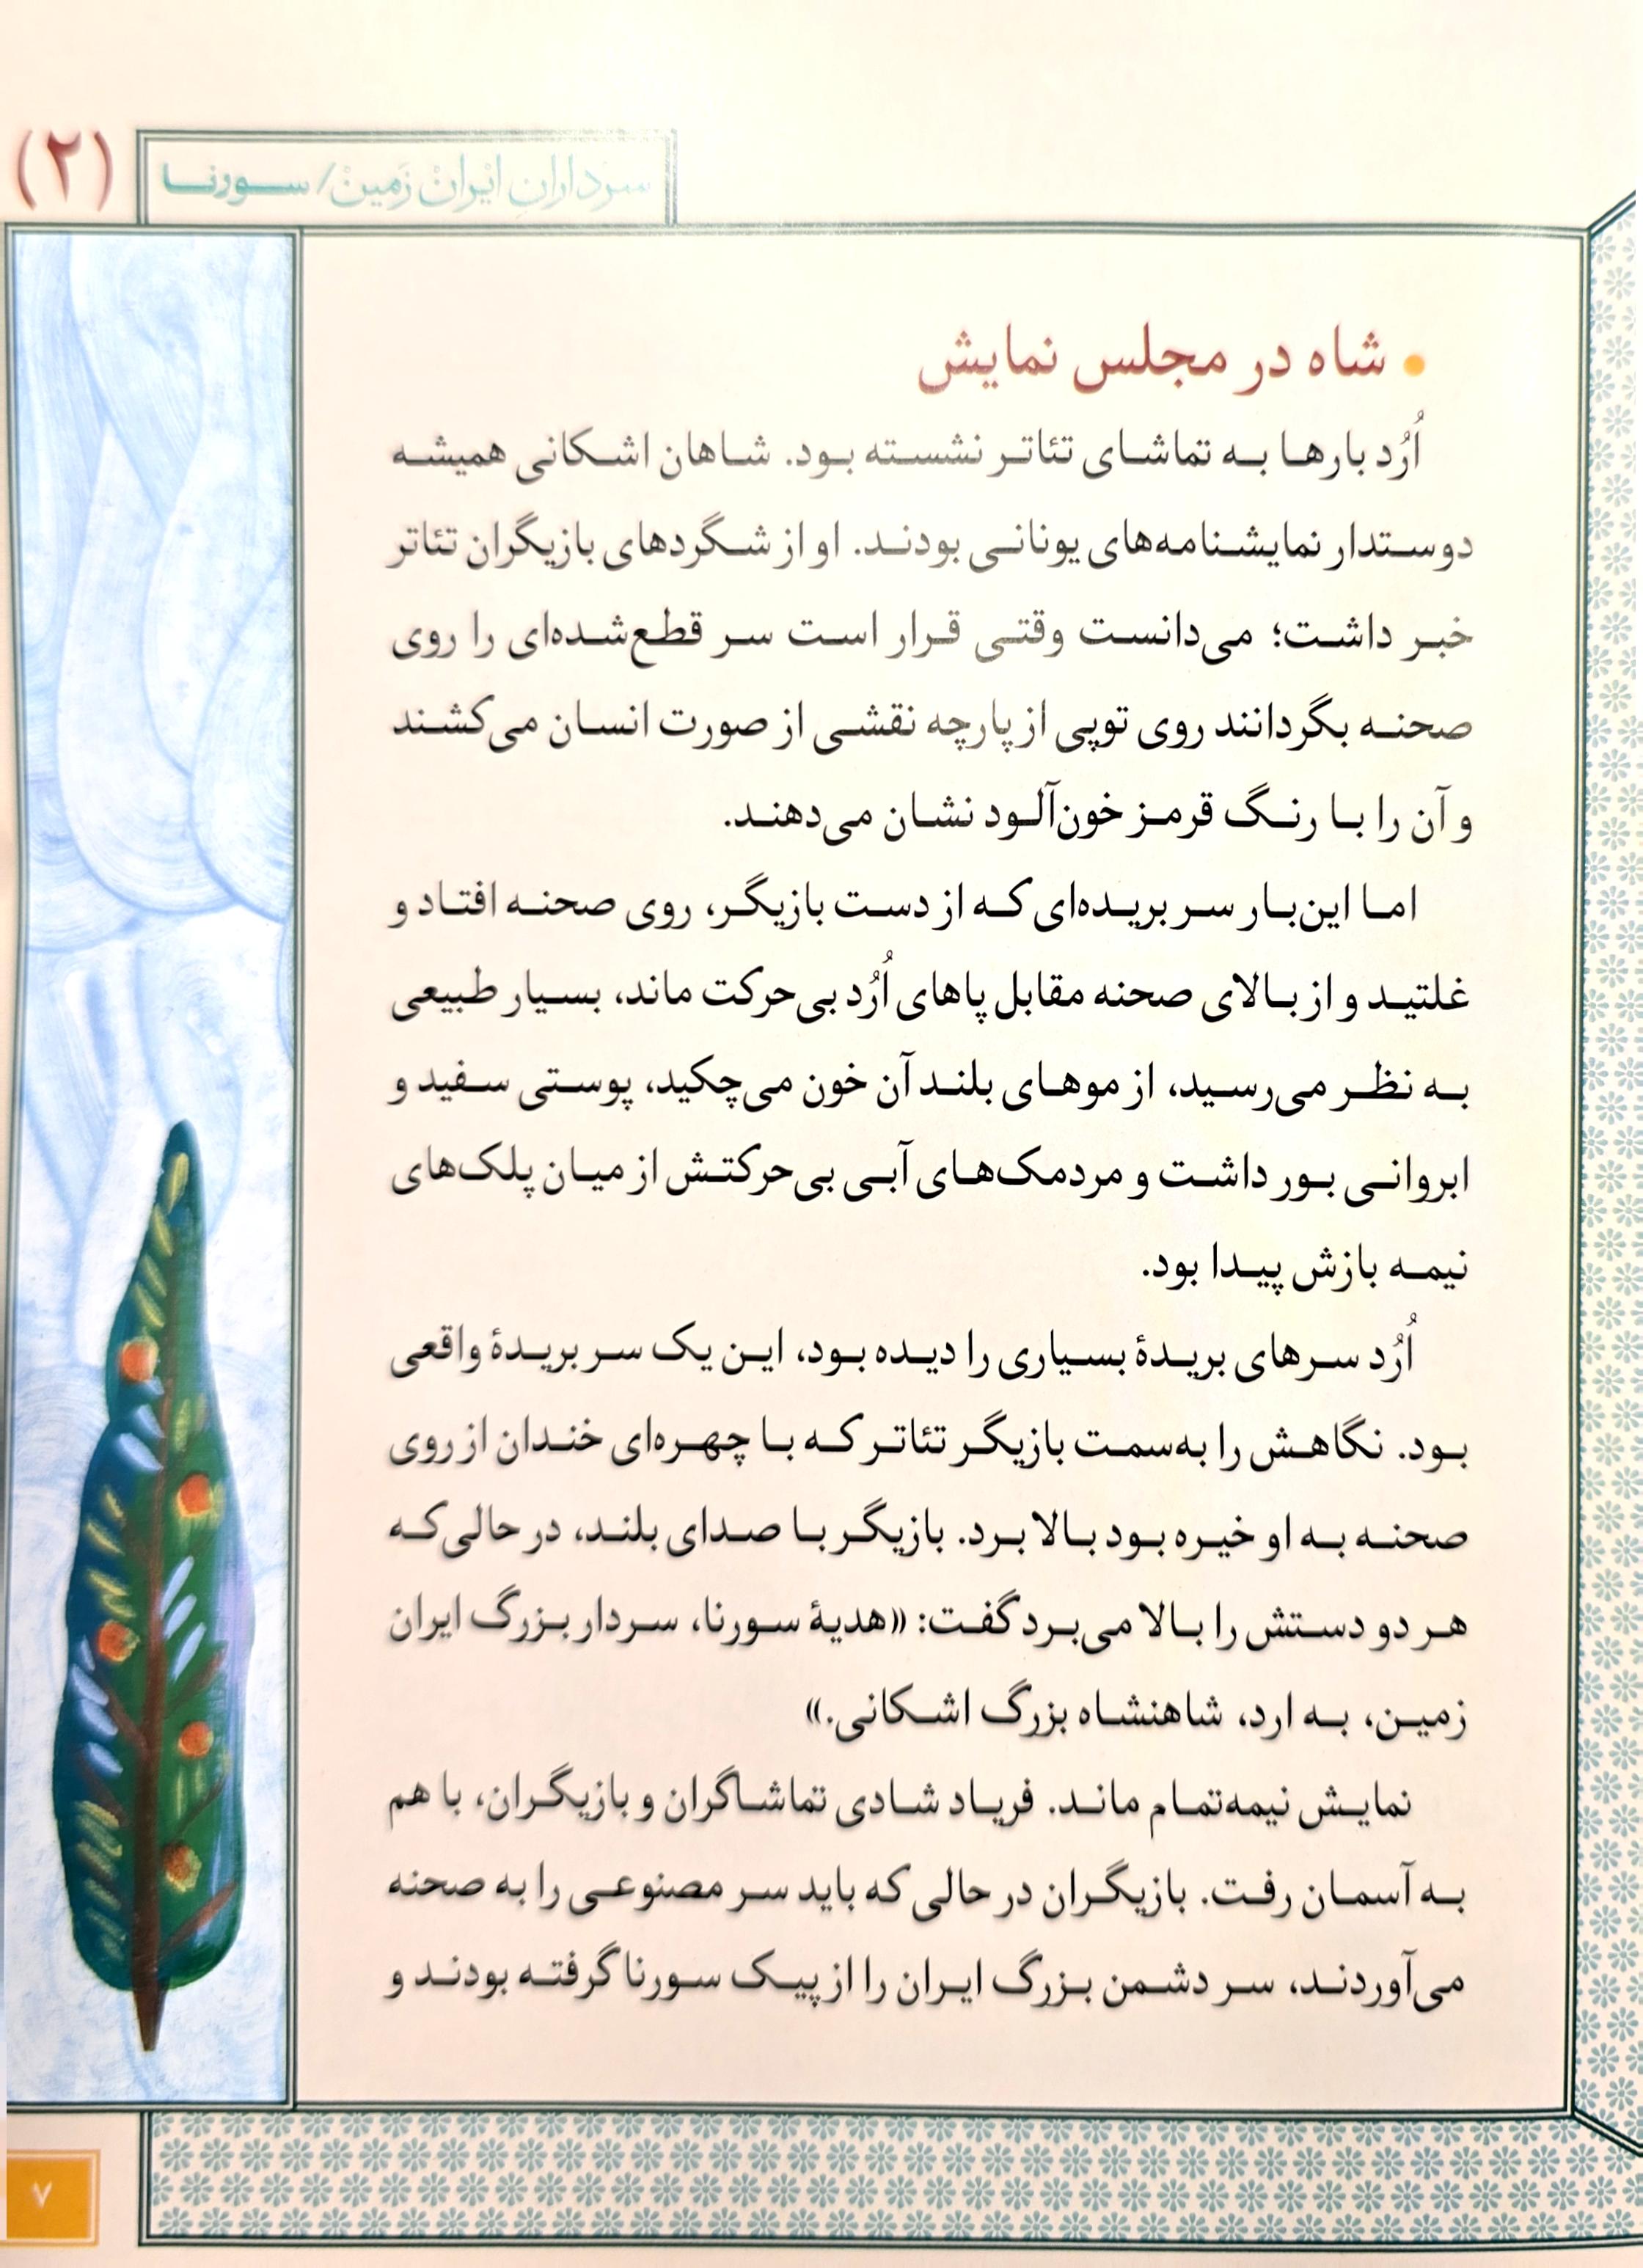 (۲)
سرداران ایران زمین/ سورنا
• شاه در مجلس نمایش
اُرُد بارها به تماشای تئاتر نشسته بود. شاهان اشکانی همیشه
دوستدار نمایشنامه‌های یونانی بودند. او از شگردهای بازیگران تئاتر
خبر داشت؛ می‌دانست وقتی قرار است سر قطع‌شده‌ای را روی
صحنه بگردانند روی توپی از پارچه نقشی از صورت انسان می‌کشند
و آن را با رنگ قرمز خون‌آلود نشان می‌دهند.
اما این‌بار سر بریده‌ای که از دست بازیگر، روی صحنه افتاد و
غلتید و از بالای صحنه مقابل پاهای اُرُد بی‌حرکت ماند، بسیار طبیعی
به نظر می‌رسید، از موهای بلند آن خون می‌چکید، پوستی سفید و
ابروانی بور داشت و مردمک‌های آبی بی‌حرکتش از میان پلک‌های
نیمه بازش پیدا بود.
اُرُد سرهای بریدهٔ بسیاری را دیده بود، این یک سر بریدهٔ واقعی
بود. نگاهش را به‌سمت بازیگر تئاتر که با چهره‌ای خندان از روی
صحنه به او خیره بود بالا برد. بازیگر با صدای بلند، در حالی‌که
هر دو دستش را بالا می‌برد گفت: «هدیهٔ سورنا، سردار بزرگ ایران
زمین، به ارد، شاهنشاه بزرگ اشکانی.»
نمایش نیمه‌تمام ماند. فریاد شادی تماشاگران و بازیگران، با هم
به آسمان رفت. بازیگران در حالی که باید سر مصنوعی را به صحنه
می‌آوردند، سر دشمن بزرگ ایران را از پیک سورنا گرفته بودند و
۷